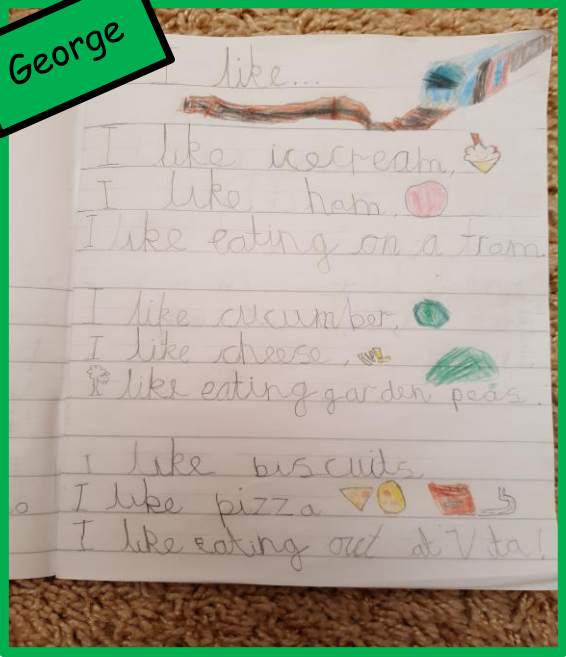 George
I like...
I like icecream,
I like ham,
I like eating on a tram.
I like cucumber,
I like cheese,
I like eating garden peas.
I like biscuits
I like pizza
I like eating out at Vita!